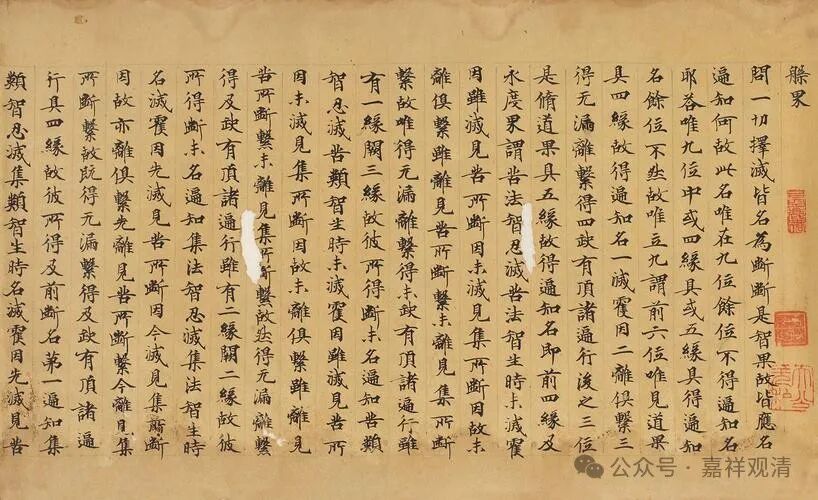 果
問一切擇滅皆名為斷斷是智果故皆應名
遍知何故此名唯在九位餘位不得遍知名
耶荅唯九位中或四緣具或五緣具得遍知
名餘位不然故唯立九謂前六位唯見道果
具四緣故得遍知名一滅雙因二離俱繫三
得无漏離繫得四缺有頂諸遍行後之三位
是脩道果具五緣故得遍知名即前四緣及
永度界謂苦法智忍滅苦法智生時未滅雙
因雖滅見苦所斷因未滅見集所斷因故未
離俱繫雖離見苦所斷繫未離見集所斷
繫故唯得无漏離繫得未缺有頂諸遍行雖
有一緣闕三緣故彼所得斷未名遍知苦類
智忍滅苦類智生時未滅雙因雖滅見苦所
因未滅見集所斷因故未離俱繫雖離見
苦所斷繫未離見集所斷繫故然得无漏繫
得及缺有頂諸遍行雖有二緣闕二緣故彼
所得斷未名遍知集法智忍滅集法智生時
名滅雙因先滅見苦所斷因今滅見集所斷
因故亦離俱繫先離見苦所斷繫今離見集
所斷繫故既得无漏繫得及缺有頂諸遍
行具四緣故彼所得及前斷名第一遍知集
類智忍滅集類智生時名滅雙因先滅見苦
公众号·嘉祥观清